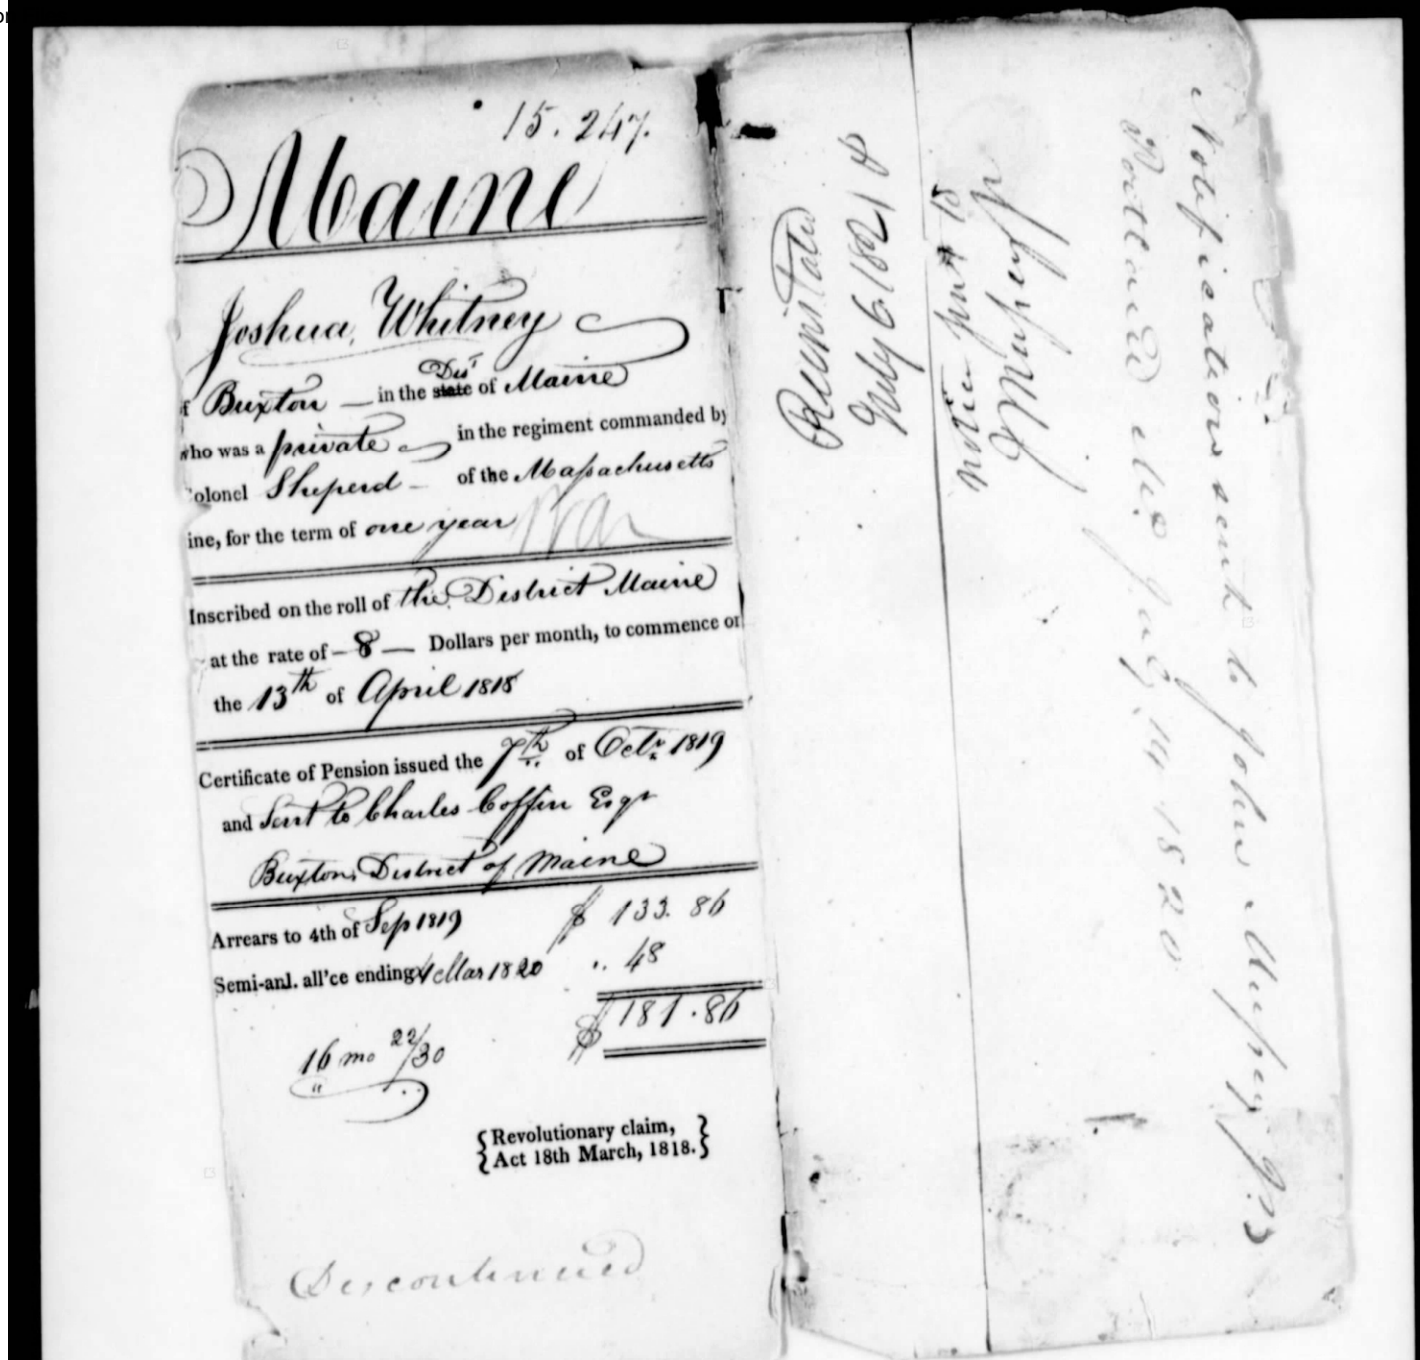 or
15.247.
Maine
Joshua Whitney
f Buxton — in the Dist state of Maine
who was a private in the regiment commanded by
olonel Sheperd — of the Massachusetts
ine, for the term of one year War
Inscribed on the roll of the District Maine
at the rate of — 8 — Dollars per month, to commence on
the 13th of April 1818
Certificate of Pension issued the 7th of Octr. 1819
and Sent to Charles Coffin Esqr
Buxton, District of Maine
Arrears to 4th of Sep 1819 $ 133.86
Semi-anl. all'ce ending 4 Mar 1820 .. 48
$ 181.86
16 mo 22/30
{Revolutionary claim,
Act 18th March, 1818.}
Discontinued
Reinstated
July 6 1821
Notification sent to John
Portland July 14 1820